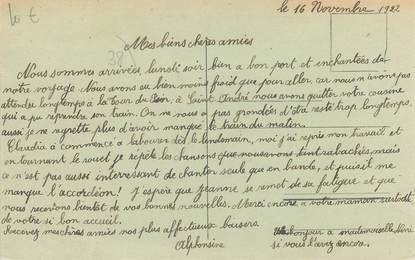 le 16 Novembre 1922
Mes biens chères amies
Nous sommes arrivées lundi soir bien a bon port et enchantées de
notre voyage. Nous avons eu bien moins froid que pour aller, car nous n'avons pas
attendu longtemps à la tour du Pin, à Saint André nous avons quitter votre cousine
qui a pu reprendre son train. On ne nous a pas grondées d'être resté trop longtemps
aussi je ne regrette plus d'avoir manqué le train du matin.
Claudia à commencé a labourer dès le lendemain, moi j'ai repris mon travail et
en tournant le rouet je répète les chansons que nous avons tant rabachées, mais
ce n'est pas aussi interressant de chanter seule que en bande, et puis il me
manque l'accordéon! J'espère que Jeanne se remet de sa fatigue et que
nous recevrons bientot de vos bonnes nouvelles. Merci encore a votre maman surtout
de votre si bon accueil.
Recevez mes chères amies nos plus affectueux baisers
Alphonsine
bonjour a mademoiselle
si vous l'avez encore.
38